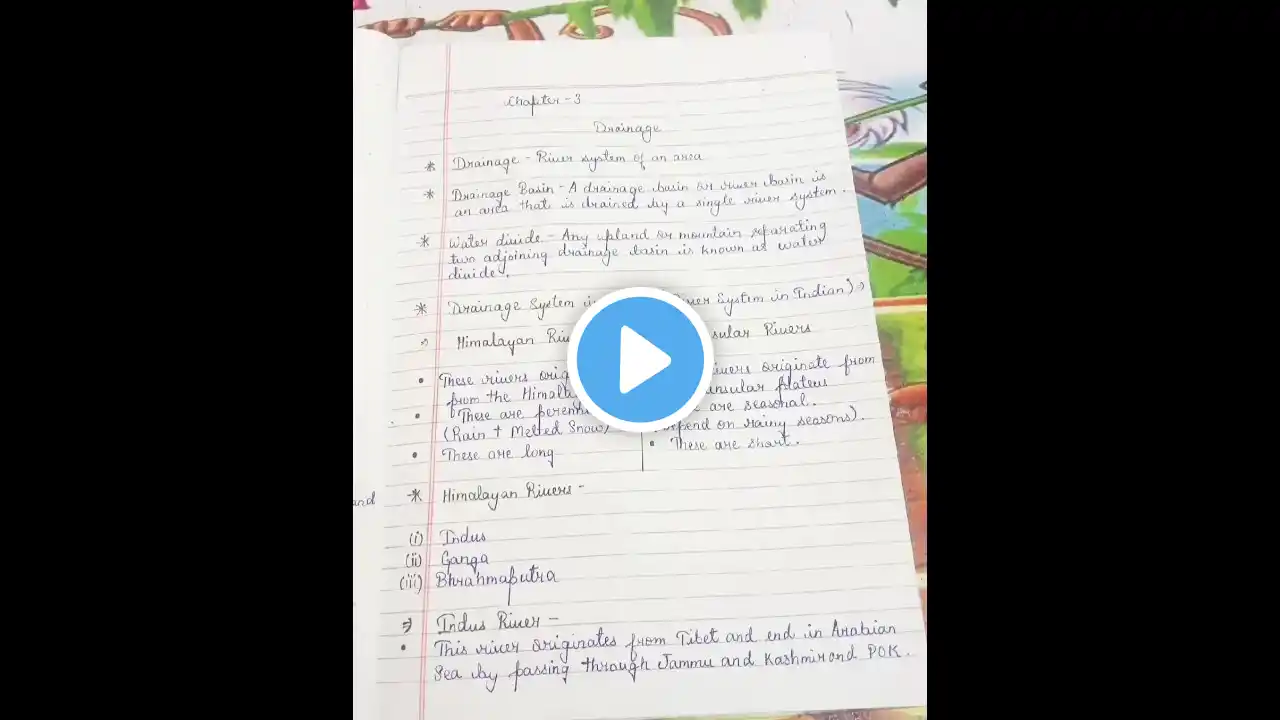 Chapter - 3
Drainage
* Drainage - River system of an area
* Drainage Basin - A drainage basin or river basin is
an area that is drained by a single river system.
* Water divide - Any upland or mountain separating
two adjoining drainage basin is known as water
divide.
* Drainage System in System in Indian)
Himalayan Rivers
• These rivers rivers originate from
from the plateus
• These are are seasonal.
(Rain + Melted Snow) depend on rainy seasons).
• These are long • These are short.
and
* Himalayan Rivers -
(i) Indus
(ii) Ganga
(iii) Bhrahmaputra
⇒ Indus River -
• This river originates from Tibet and end in Arabian
Sea by passing through Jammu and Kashmir and POK.